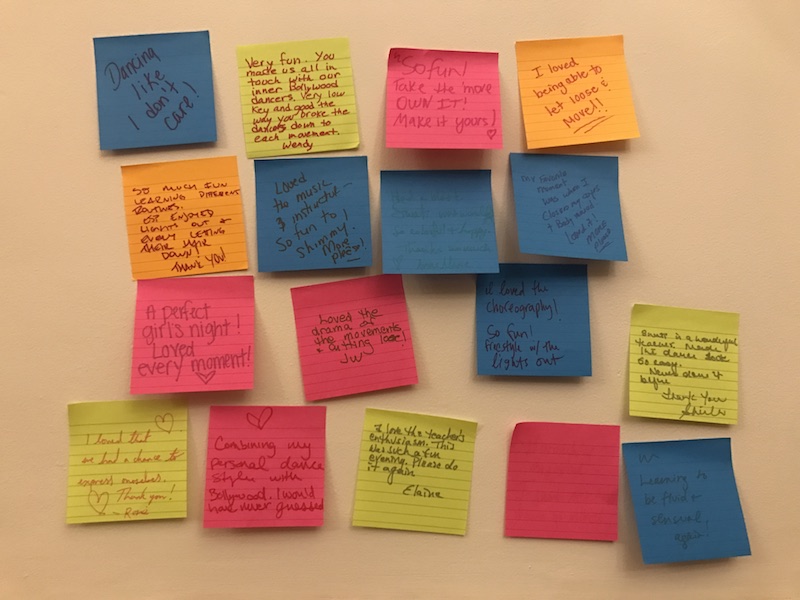 Dancing
like
I don't
care!
Very fun. You
made us all in
touch with our
inner Bollywood
dancers. Very low
key and good the
way you broke the
dances down to
each movement.
Wendy
So fun!
Take the move
OWN IT!
Make it yours!
I loved
being able to
let loose &
move!!
SO MUCH FUN
LEARNING DIFFERENT
ROUTINES.
ENJOYED
LIGHTS OUT &
EVERY LETING
THEIR HAIR
DOWN!
THANK YOU!
Loved
the music
& instructor
So fun to
shimmy!
More
please!
My favorite
moment
was when I
closed my eyes
& Body
loved it!
more
please
A perfect
girl's night!
Loved
every moment!
Loved the
drama of
the movements
& cutting loose!
JW
I loved the
choreography!
So fun!
Freestyle w/ the
lights out
is a wonderful
teacher. Made
the dance look
so easy.
Never done it
before
Thank you
I loved that
we had a chance to
express ourselves.
Thank you!
- Rose
Combining my
personal dance
style with
Bollywood. I would
have never guessed
I love the teacher's
enthusiasm. This
was such a fun
evening. Please do
it again
Elaine
Learning to
be fluid &
sensual
again!